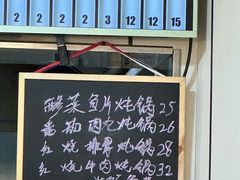 2 5 8 12 15
酸菜鱼片炖锅25
番茄肉丸炖锅26
红烧排骨炖锅28
红烧牛肉炖锅32